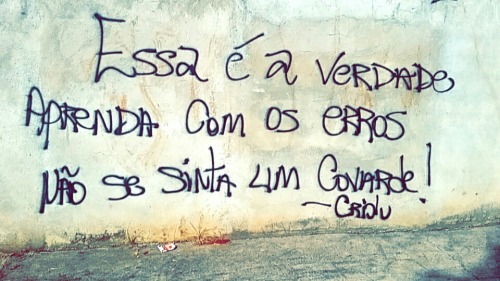 Essa é a verdade
Aprenda com os erros
Não se sinta um covarde!